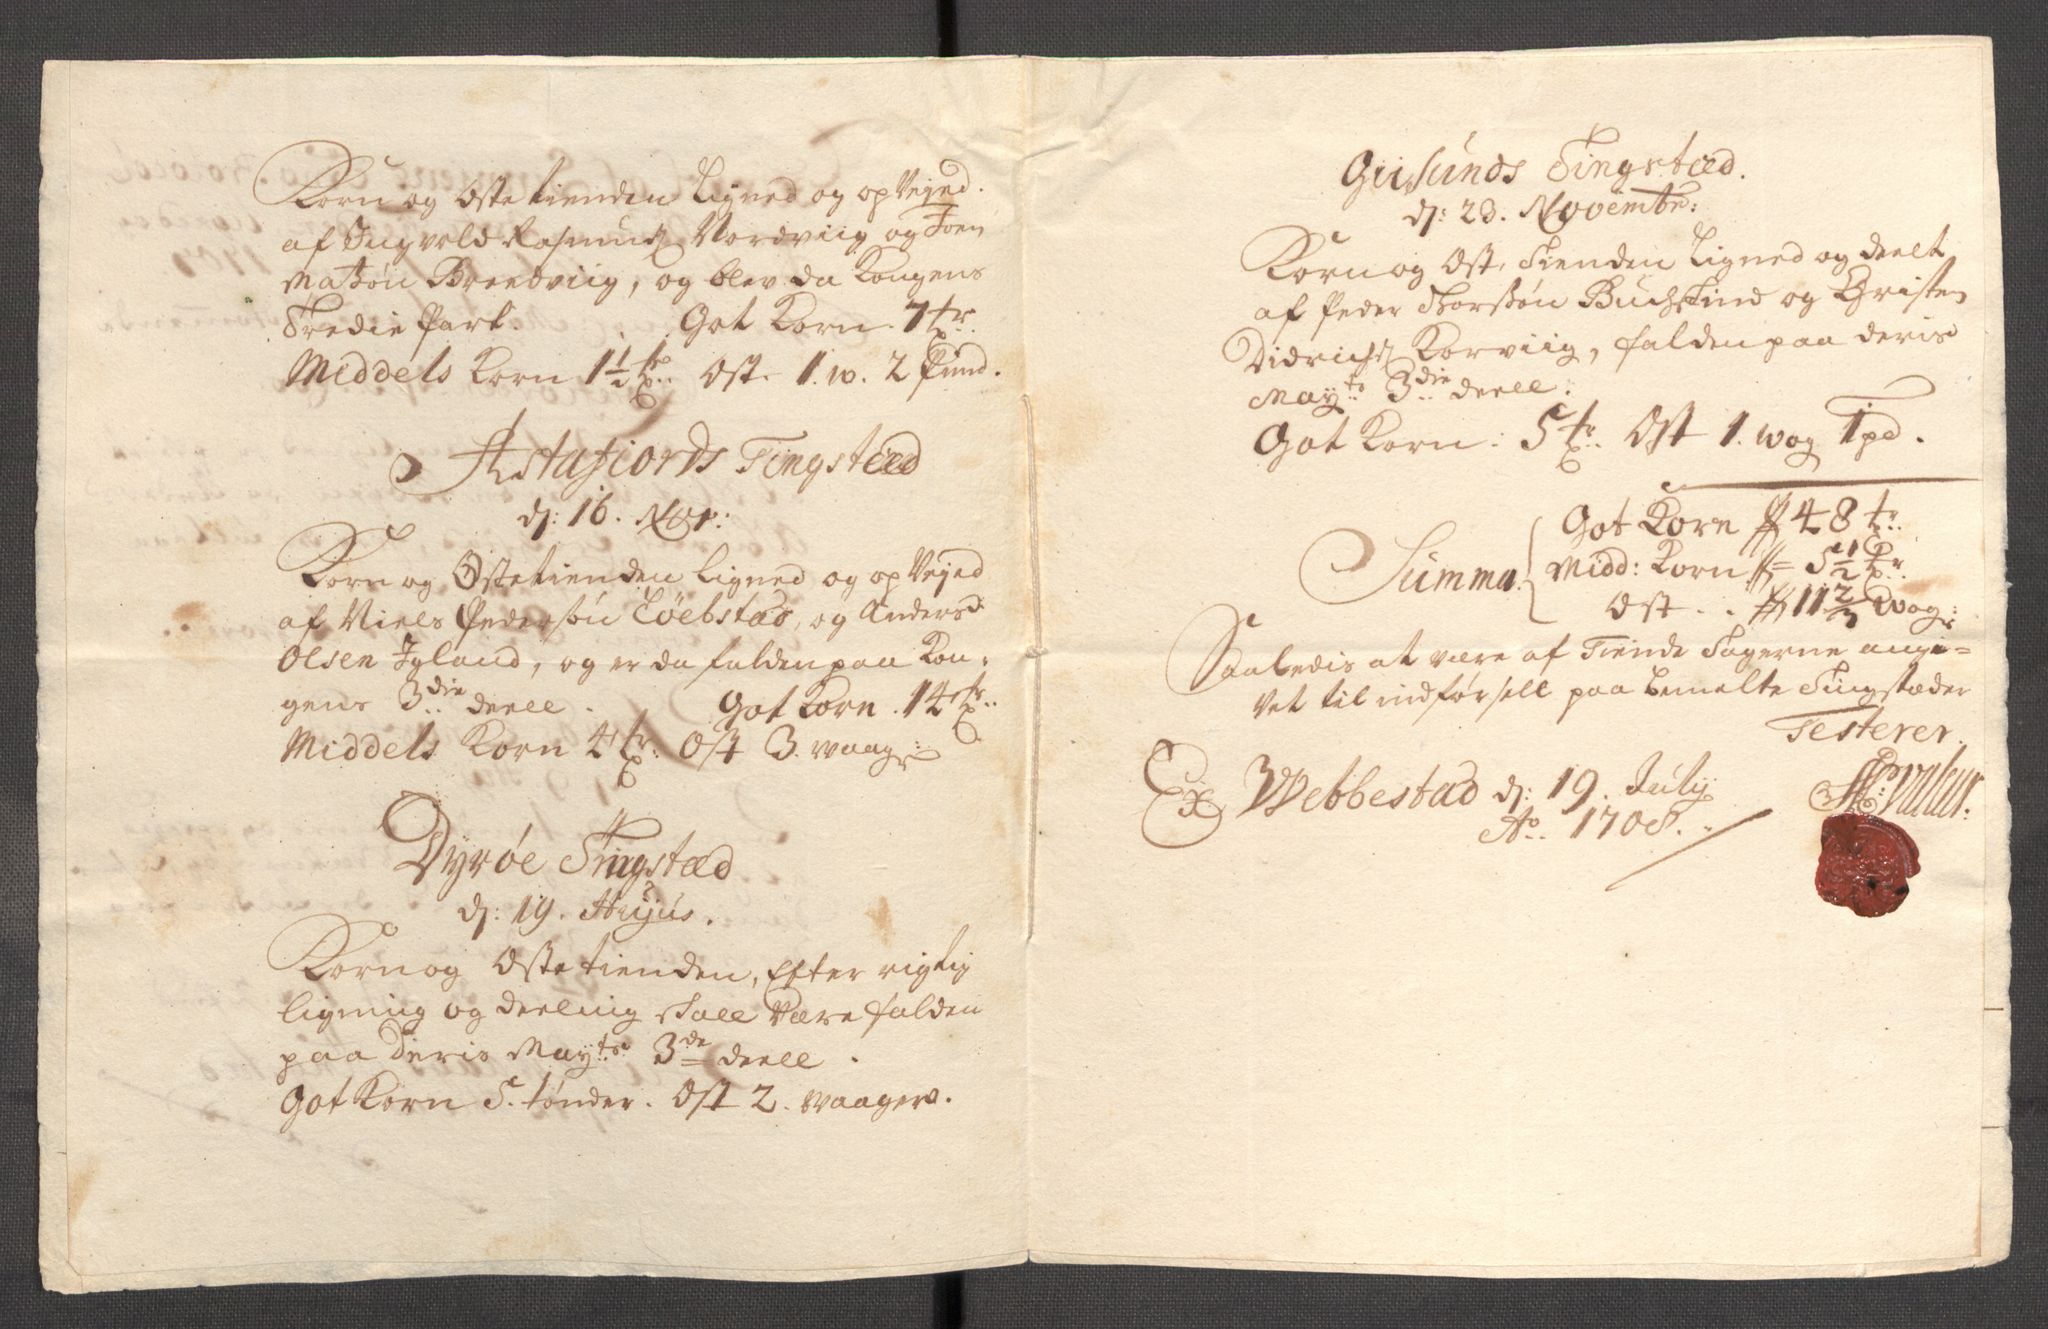 Korn og Ostetienden Ligned og op Vejed.
af Ingvold Rasmuds Nordviig og Joen
Matzøn Breedviig, og blev da Kongens
Tredie Part. Got Korn. 7 tr
Middels Korn 1½ tr. Ost. 1. w. 2 Pund.
Astafiords Tingsteed
d: 16. Nov:
Korn og Ostetienden Ligned og op Vejed
af Niels Pedersøn Løebstad, og Anders
Olsen Igland, og er da falden paa Kon-
gens 3die deell. Got Korn. 14 tr.
Middels Korn 4 tr: Ost 3. waager
Dyrøe Tingstæd
d: 19. Hujus.
Korn og Ostetienden, Efter rigtig
ligning og deeling skall være falden
paa deris Mayts 3de deell.
Got Korn 5. tønder. Ost 2. Waager.
Giisunds Tingsteed.
d: 23. Novembr:
Korn og Ost, Tienden Ligned og deelt
af Peder Thorssøn Buchskind og Christen
Didrichs Korviig, falden paa deris
Mayts 3die deell:
Got Korn: 5 tr. Ost 1. wog 1 pd.
Summa Got Korn 48 tr.
Midd: Korn 5½ tr.
Ost. 11⅔ wog:
Saaledis at være af Tiende Tagerne angi-
vet til indførsell paa bemelte Tingstæder
Testerer.
Ex Webbestad d: 19. July
Ao. 1708.